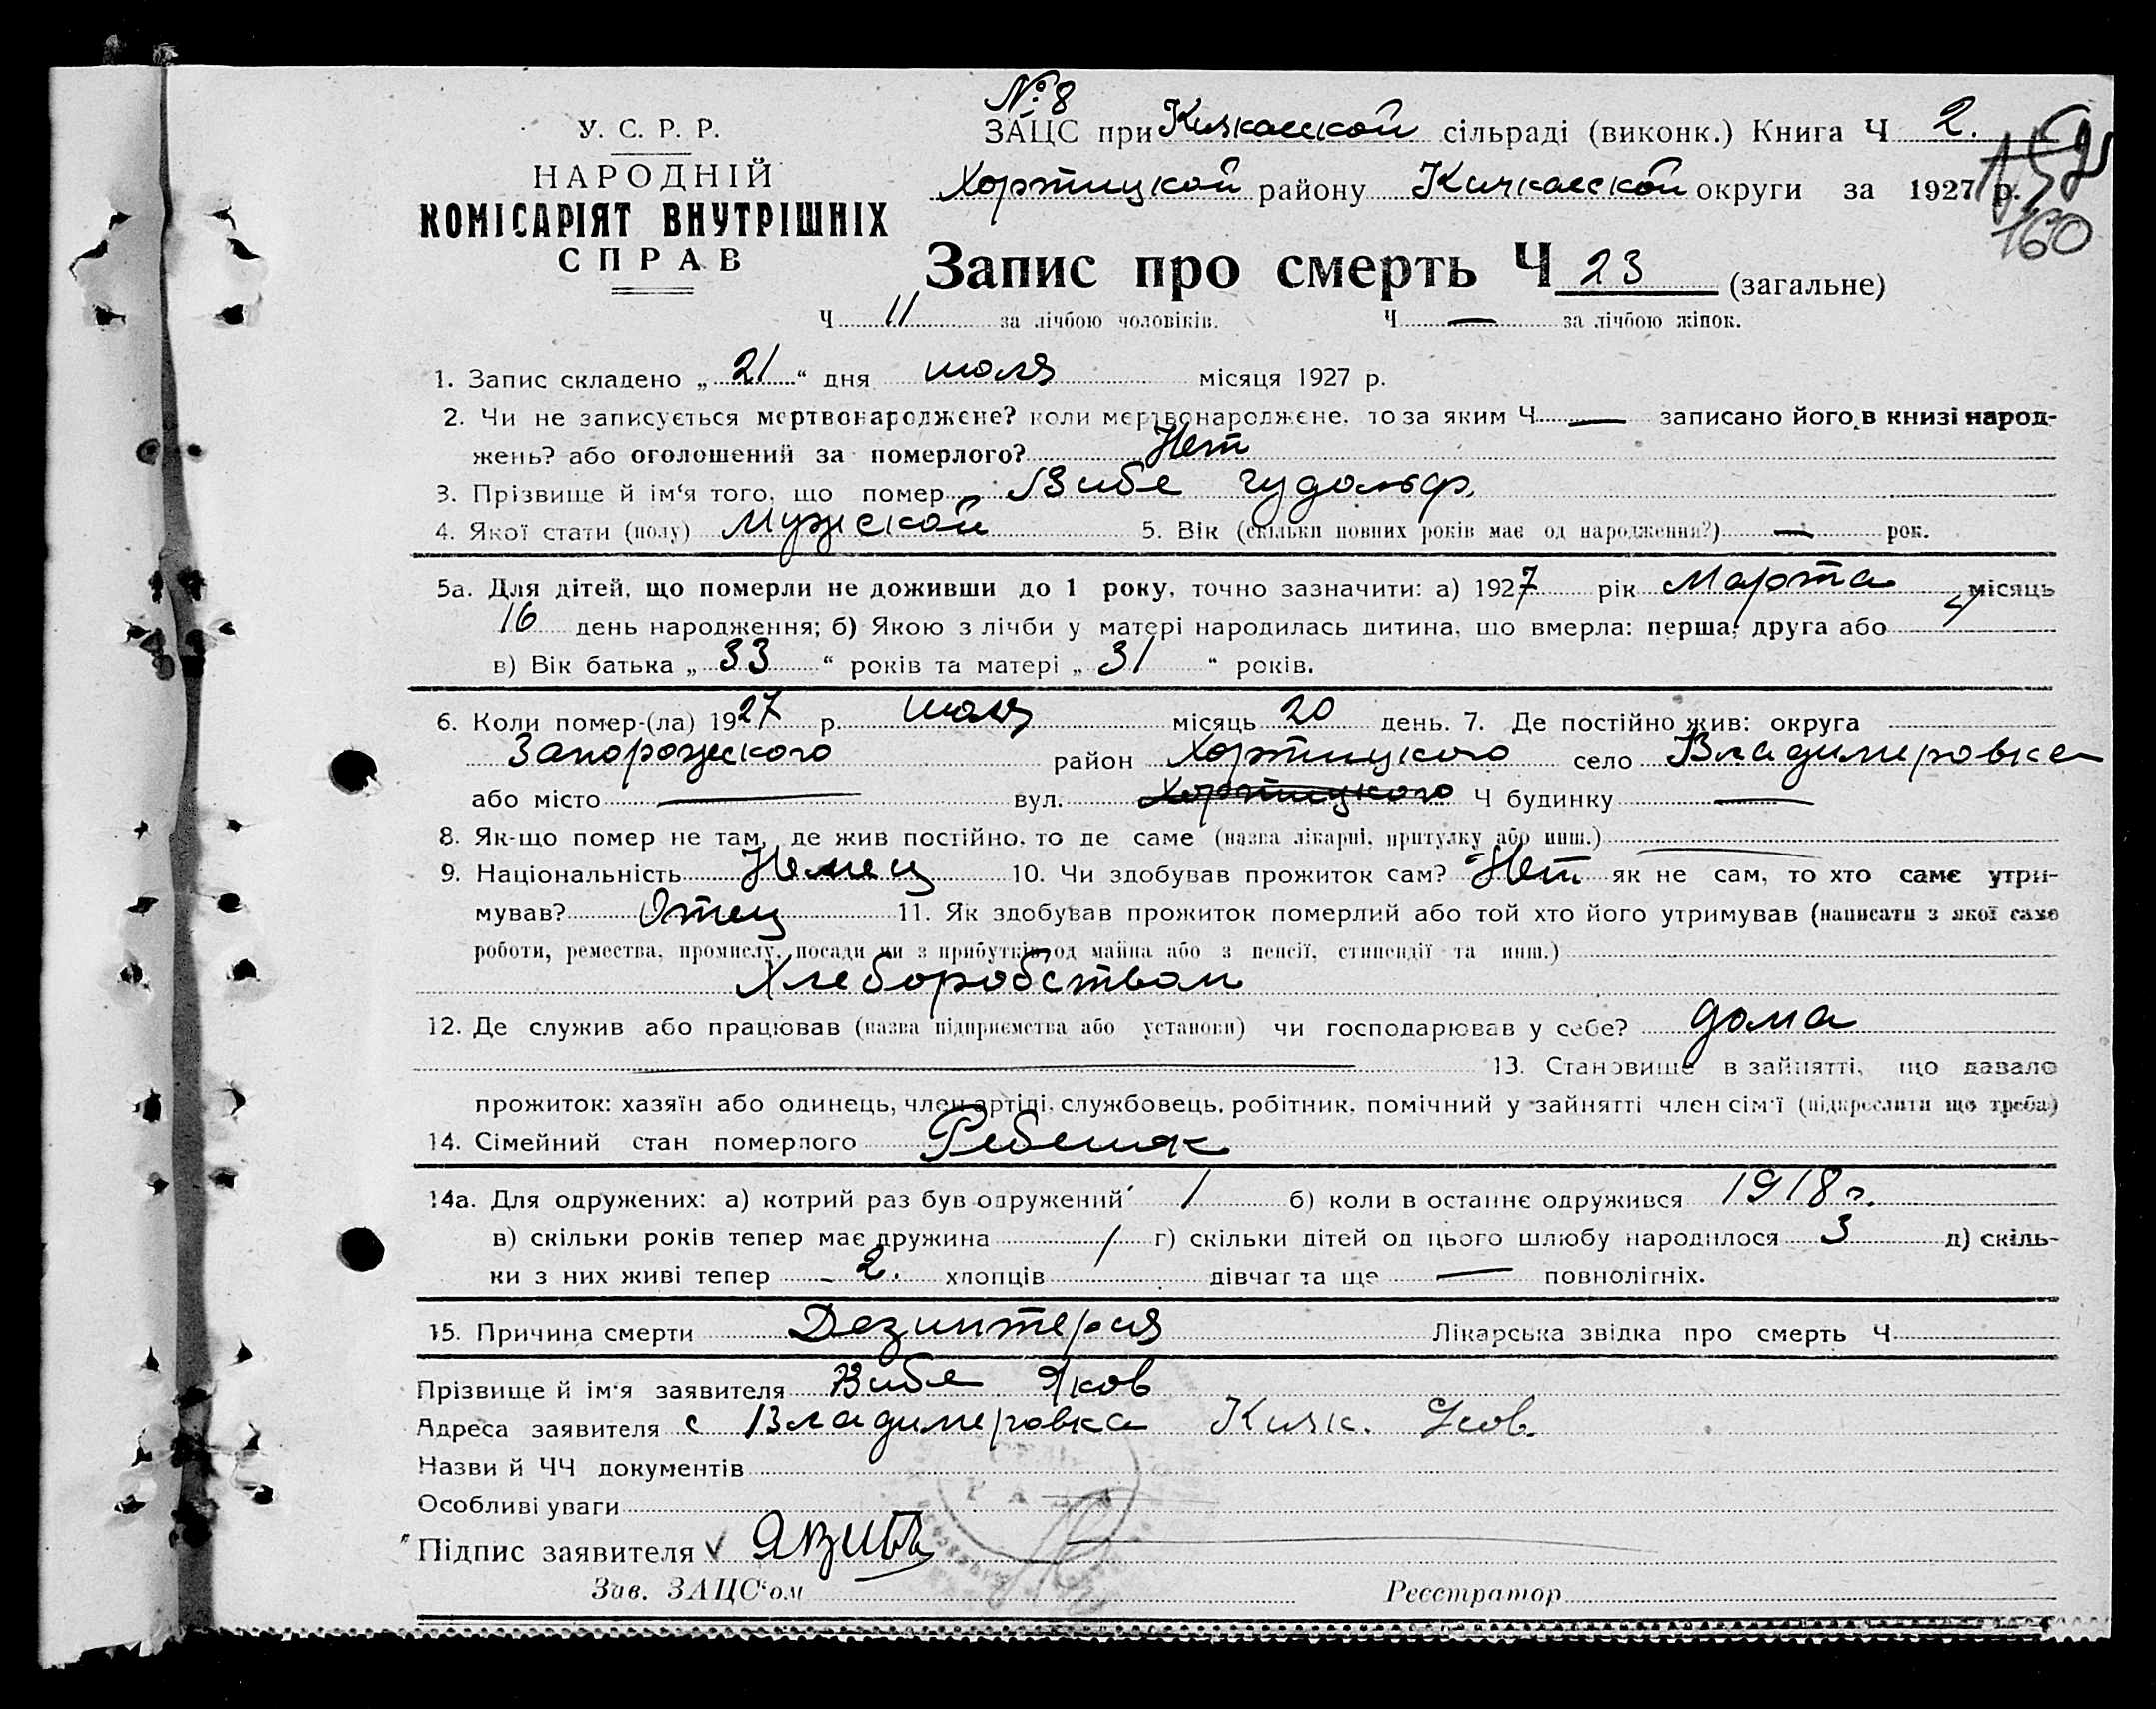 № 8
У. С. Р. Р.
НАРОДНІЙ
КОМІСАРІЯТ ВНУТРІШНІХ
СПРАВ
ЗАЦС при Кичкасской сільраді (виконк.) Книга Ч 2.
Хортицкой району Кичкасской округи за 1927 р.
159
160
Запис про смерть Ч 23 (загальне)
Ч 11 за лічбою чоловіків. Ч — за лічбою жінок.
1. Запис складено „ 21 “ дня июля місяця 1927 р.
2. Чи не записується мертвонароджене? коли мертвонароджене, то за яким Ч — записано його в книзі народ-
жень? або оголошений за померлого? Нет
3. Прізвище й ім‘я того, що помер Вибе Гудольф.
4. Якої стати (полу) Мужской 5. Вік (скільки повних років має од народження?) — рок.
5а. Для дітей, що померли не доживши до 1 року, точно зазначити: а) 1927 рік Марта місяць
16 день народження; б) Якою з лічби у матері народилась дитина, що вмерла: перша, друга або
в) Вік батька „ 33 “ років та матері „ 31 “ років.
6. Коли помер-(ла) 1927 р. июля місяць 20 день. 7. Де постійно жив: округа
Запорожского район Хортицкого село Владимеровка
або місто — вул. Хортицкого Ч будинку —
8. Як-що помер не там, де жив постійно, то де саме (назва лікарні, притулку або инш.)
9. Національність Немец 10. Чи здобував прожиток сам? Нет як не сам, то хто саме утри-
мував? Отец 11. Як здобував прожиток померлий або той хто його утримував (написати з якої саме
роботи, ремества, промислу, посади чи з прибутків од майна або з пенсії, стипендії та инш.)
Хлеборобством
12. Де служив або працював (назва підприємства або установи) чи господарював у себе? дома
— 13. Становище в зайнятті, що давало
прожиток: хазяїн або одинець, член артілі, службовець, робітник, помічний у зайнятті член сім‘ї (підкреслити що треба)
14. Сімейний стан померлого Ребенок
14а. Для одружених: а) котрий раз був одружений 1 б) коли в останнє одружився 1918 г.
в) скільки років тепер має дружина / г) скільки дітей од цього шлюбу народилося 3 д) скіль-
ки з них живі тепер 2. хлопців дівчат та ще — повнолітніх.
15. Причина смерти Дезинтерия Лікарська звідка про смерть Ч
Прізвище й ім‘я заявителя Вибе Яков
Адреса заявителя с Владимеровка Кичк.
Назви й ЧЧ документів
Особливі уваги
Підпис заявителя ЯВибе
Зав. ЗАЦС‘ом Реєстратор